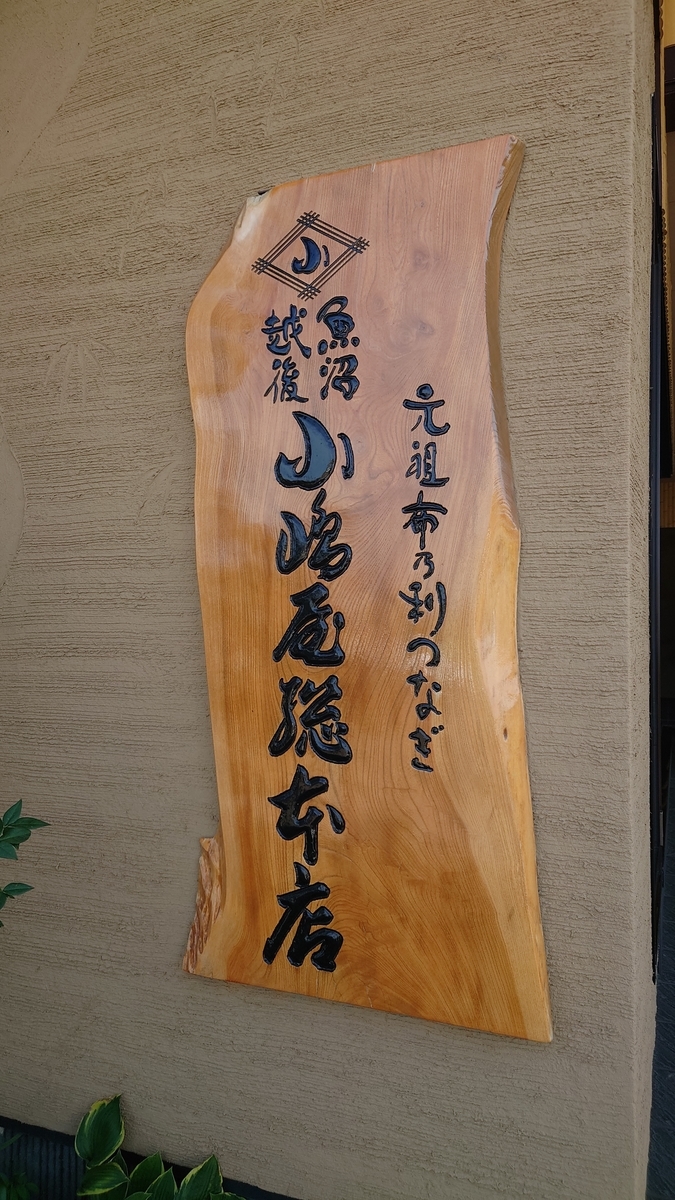 元祖布乃利つなぎ
小
魚沼
越後
小嶋屋総本店